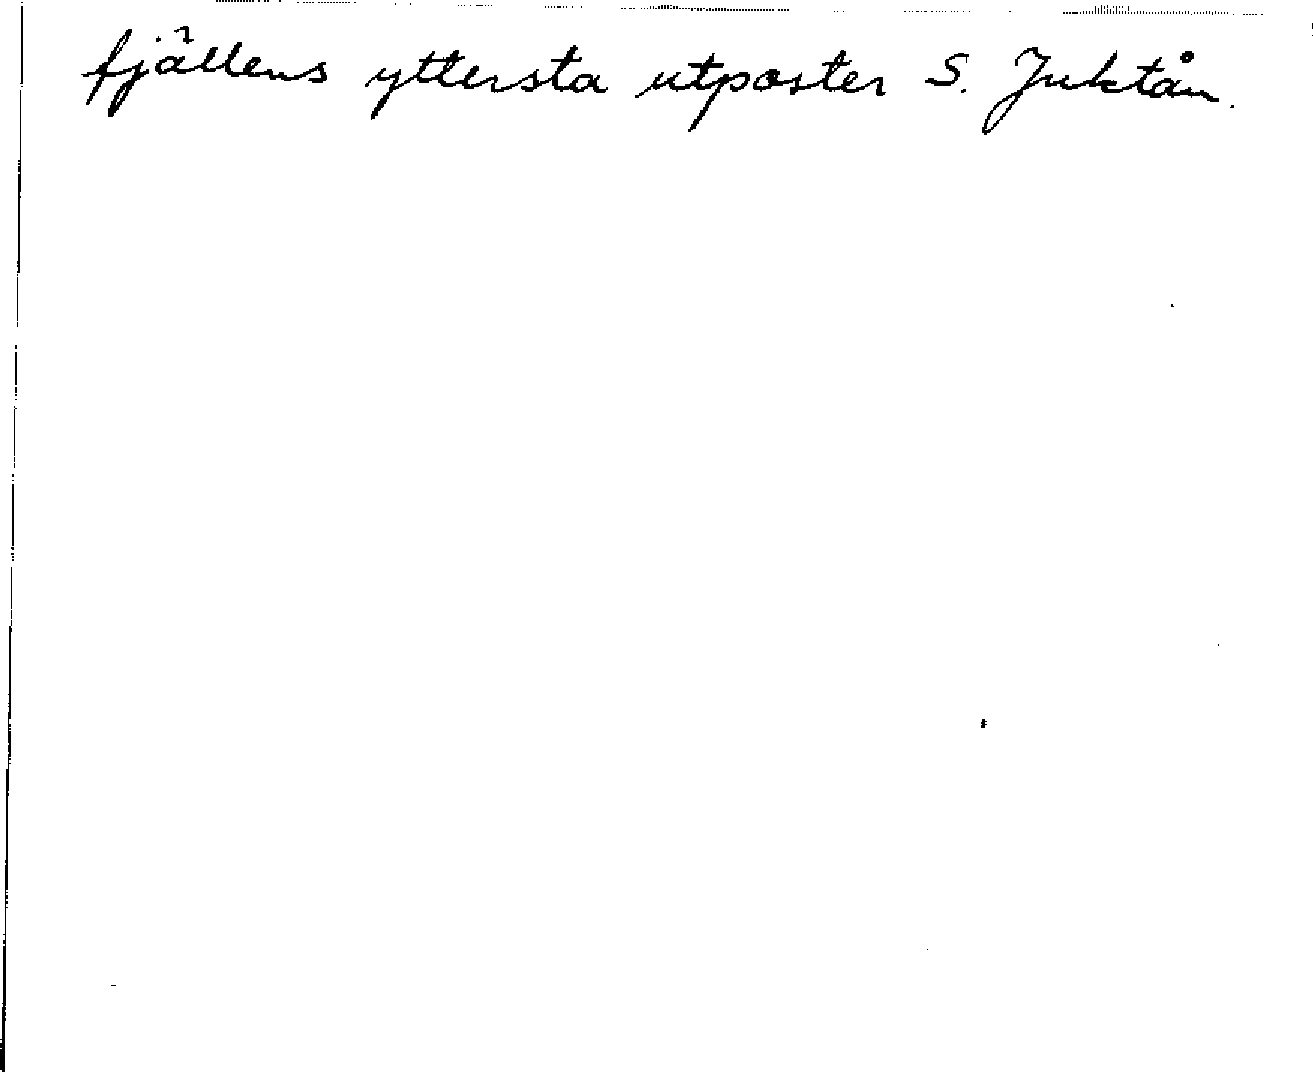 fjällens yttersta utposter S. Juktån.